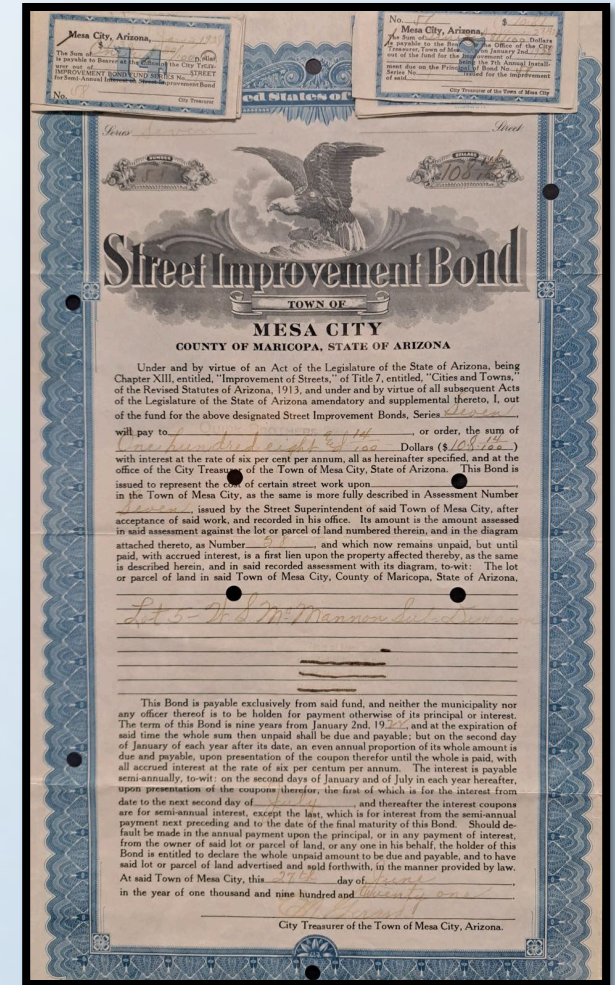 Mesa City, Arizona,
The Sum of
is payable to Bearer at the Office of the City Treas-
urer out of
IMPROVEMENT BOND FUND SERIES No. STREET
for Semi-Annual Interest on Street Improvement Bond
No. 58
City Treasurer
No. $
Mesa City, Arizona,
The Sum of Dollars
is payable to the Bearer at the Office of the City
Treasurer of the Town of Mesa City on January 2nd
out of the fund for the Improvement of
being the 7th Annual Install-
ment due on the Principal of Bond No. 58
Series No. issued for the improvement
of said
City Treasurer of the Town of Mesa City
ed States of
Series Seven Street
NUMBER
58
DOLLARS
108 14/100
Street Improvement Bond
TOWN OF
MESA CITY
COUNTY OF MARICOPA, STATE OF ARIZONA
Under and by virtue of an Act of the Legislature of the State of Arizona, being
Chapter XIII, entitled, "Improvement of Streets," of Title 7, entitled, "Cities and Towns,"
of the Revised Statutes of Arizona, 1913, and under and by virtue of all subsequent Acts
of the Legislature of the State of Arizona amendatory and supplemental thereto, I, out
of the fund for the above designated Street Improvement Bonds, Series Seven,
will pay to , or order, the sum of
One hundred eight & 14/100 Dollars ($108 14/100)
with interest at the rate of six per cent per annum, all as hereinafter specified, and at the
office of the City Treasurer of the Town of Mesa City, State of Arizona. This Bond is
issued to represent the cost of certain street work upon
in the Town of Mesa City, as the same is more fully described in Assessment Number
Seven, issued by the Street Superintendent of said Town of Mesa City, after
acceptance of said work, and recorded in his office. Its amount is the amount assessed
in said assessment against the lot or parcel of land numbered therein, and in the diagram
attached thereto, as Number 58, and which now remains unpaid, but until
paid, with accrued interest, is a first lien upon the property affected thereby, as the same
is described herein, and in said recorded assessment with its diagram, to-wit: The lot
or parcel of land in said Town of Mesa City, County of Maricopa, State of Arizona,
Lot 5 - W S McMannon Sub Division
This Bond is payable exclusively from said fund, and neither the municipality nor
any officer thereof is to be holden for payment otherwise of its principal or interest.
The term of this Bond is nine years from January 2nd. 1922, and at the expiration of
said time the whole sum then unpaid shall be due and payable; but on the second day
of January of each year after its date, an even annual proportion of its whole amount is
due and payable, upon presentation of the coupon therefor until the whole is paid, with
all accrued interest at the rate of six per centum per annum. The interest is payable
semi-annually, to-wit: on the second days of January and of July in each year hereafter,
upon presentation of the coupons therefor, the first of which is for the interest from
date to the next second day of July, and thereafter the interest coupons
are for semi-annual interest, except the last, which is for interest from the semi-annual
payment next preceding and to the date of the final maturity of this Bond. Should de-
fault be made in the annual payment upon the principal, or in any payment of interest,
from the owner of said lot or parcel of land, or any one in his behalf, the holder of this
Bond is entitled to declare the whole unpaid amount to be due and payable, and to have
said lot or parcel of land advertised and sold forthwith, in the manner provided by law.
At said Town of Mesa City, this 27th day of June,
in the year of one thousand and nine hundred and twenty one
City Treasurer of the Town of Mesa City, Arizona.